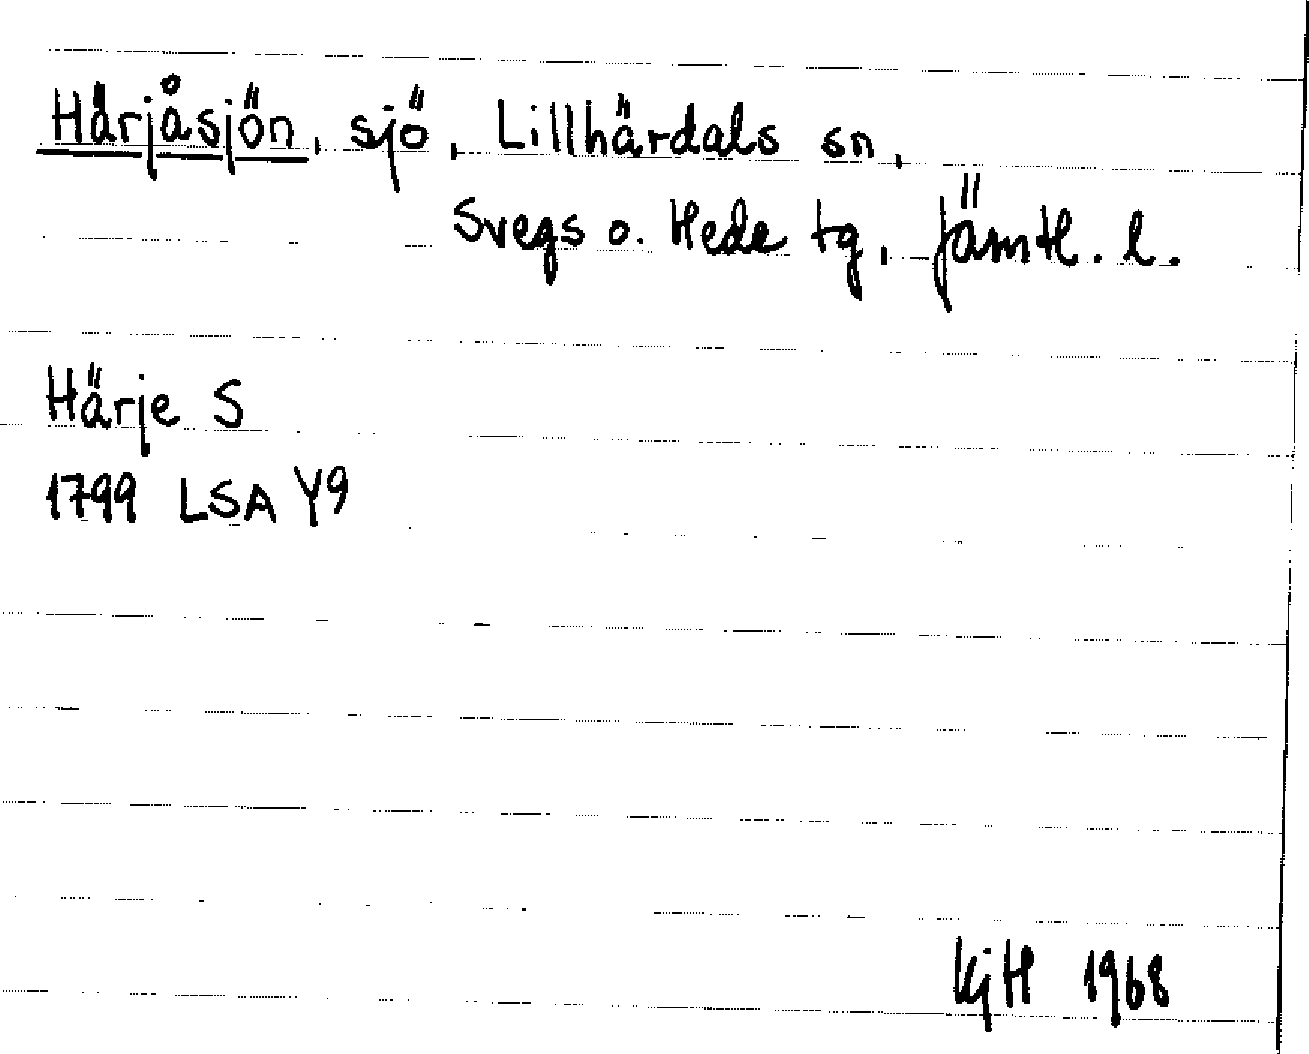 Härjåsjön, sjö, Lillhärdals sn,
Svegs o. Hede tg, Jämtl. l.
Härje S
1799 LSA Y9
KjH 1968